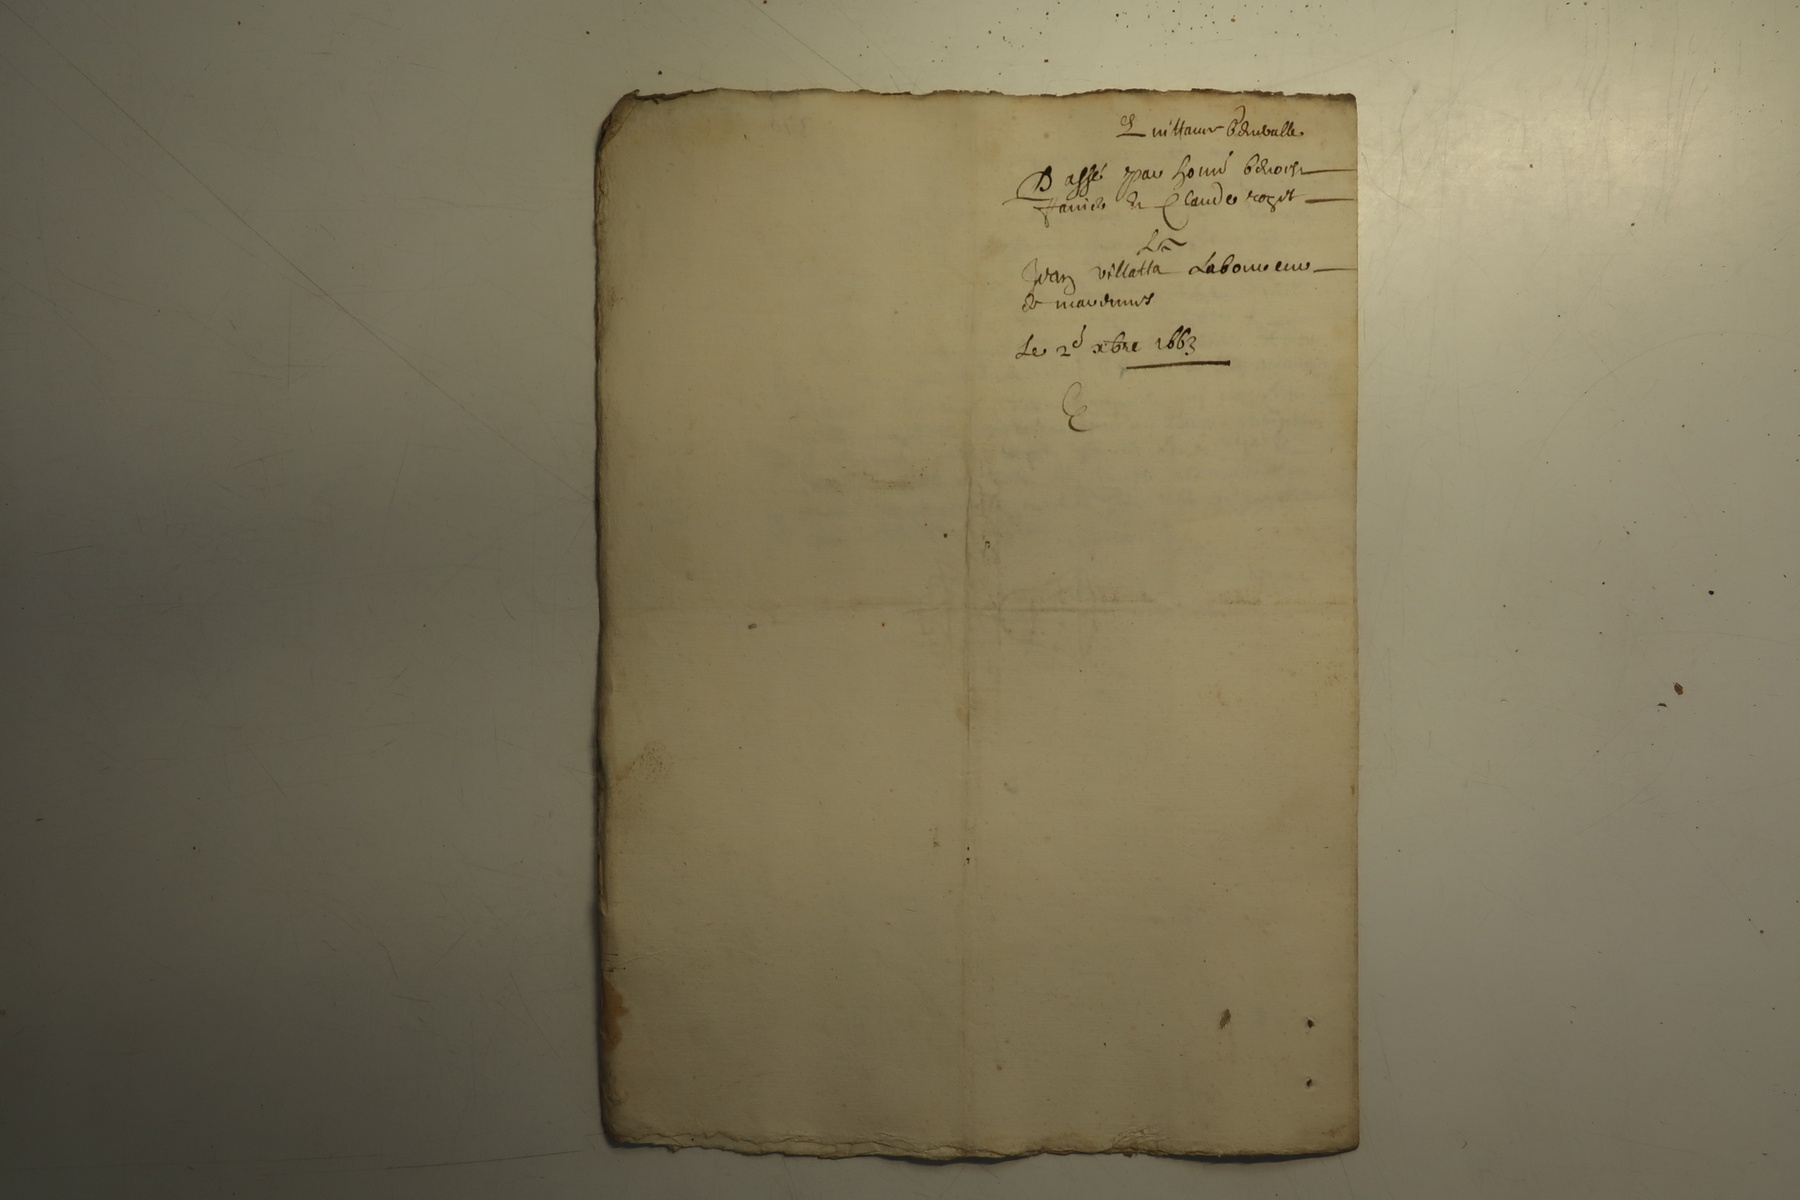 Quittance Gēnēralle
Passé par honē benoist
et Claude rogit
La
Jean villatta Laboureur
de
Le 2e xbre 1663